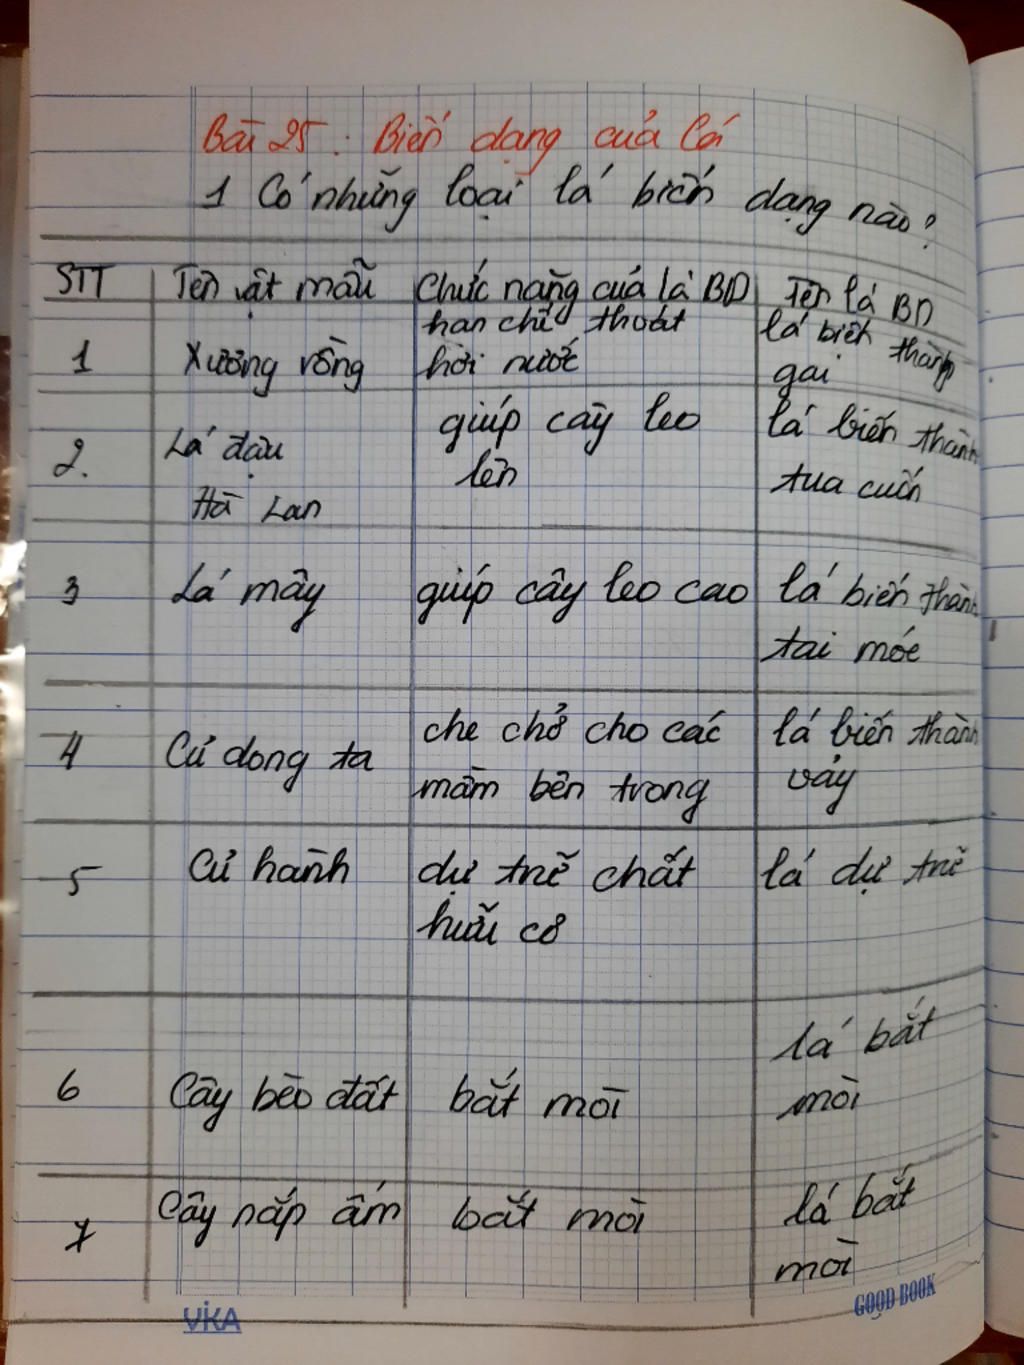 Bài 25: Biến dạng của lá
1 Có những loại lá biến dạng nào?
STT Tên vật mẫu Chức năng của lá BD Tên lá BD
1 Xương rồng hạn chế thoát hơi nước lá biến thành gai
2. Lá đậu Hà Lan giúp cây leo lên lá biến thành tua cuốn
3 Lá mây giúp cây leo cao lá biến thành tai móc
4 Củ dong ta che chở cho các mầm bên trong lá biến thành vảy
5 Củ hành dự trữ chất hữu cơ lá dự trữ
6 Cây bèo đất bắt mồi lá bắt mồi
7 Cây nắp ấm bắt mồi lá bắt mồi
VIKA
GOOD BOOK